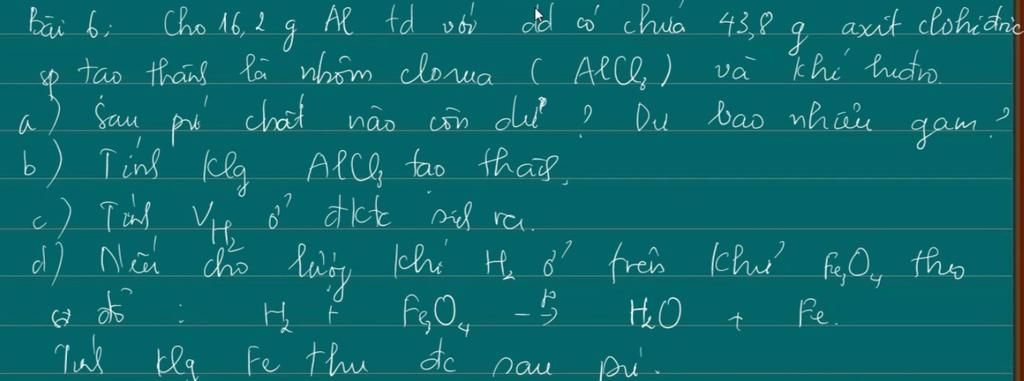 Bài 6: Cho 16,2 g Al td với dd có chứa 43,8 g axit clohiđric
sp tạo thành là nhôm clorua ( AlCl₃ ) và khí hiđro.
a) Sau pứ chất nào còn dư ? Dư bao nhiêu gam ?
b) Tính klg AlCl₃ tạo thành.
c) Tính V_H₂ ở đktc sinh ra.
d) Nếu cho lượng khí H₂ ở trên khử Fe₃O₄ theo
sơ đồ : H₂ + Fe₃O₄ --> H₂O + Fe.
Tính klg Fe thu đc sau pứ.